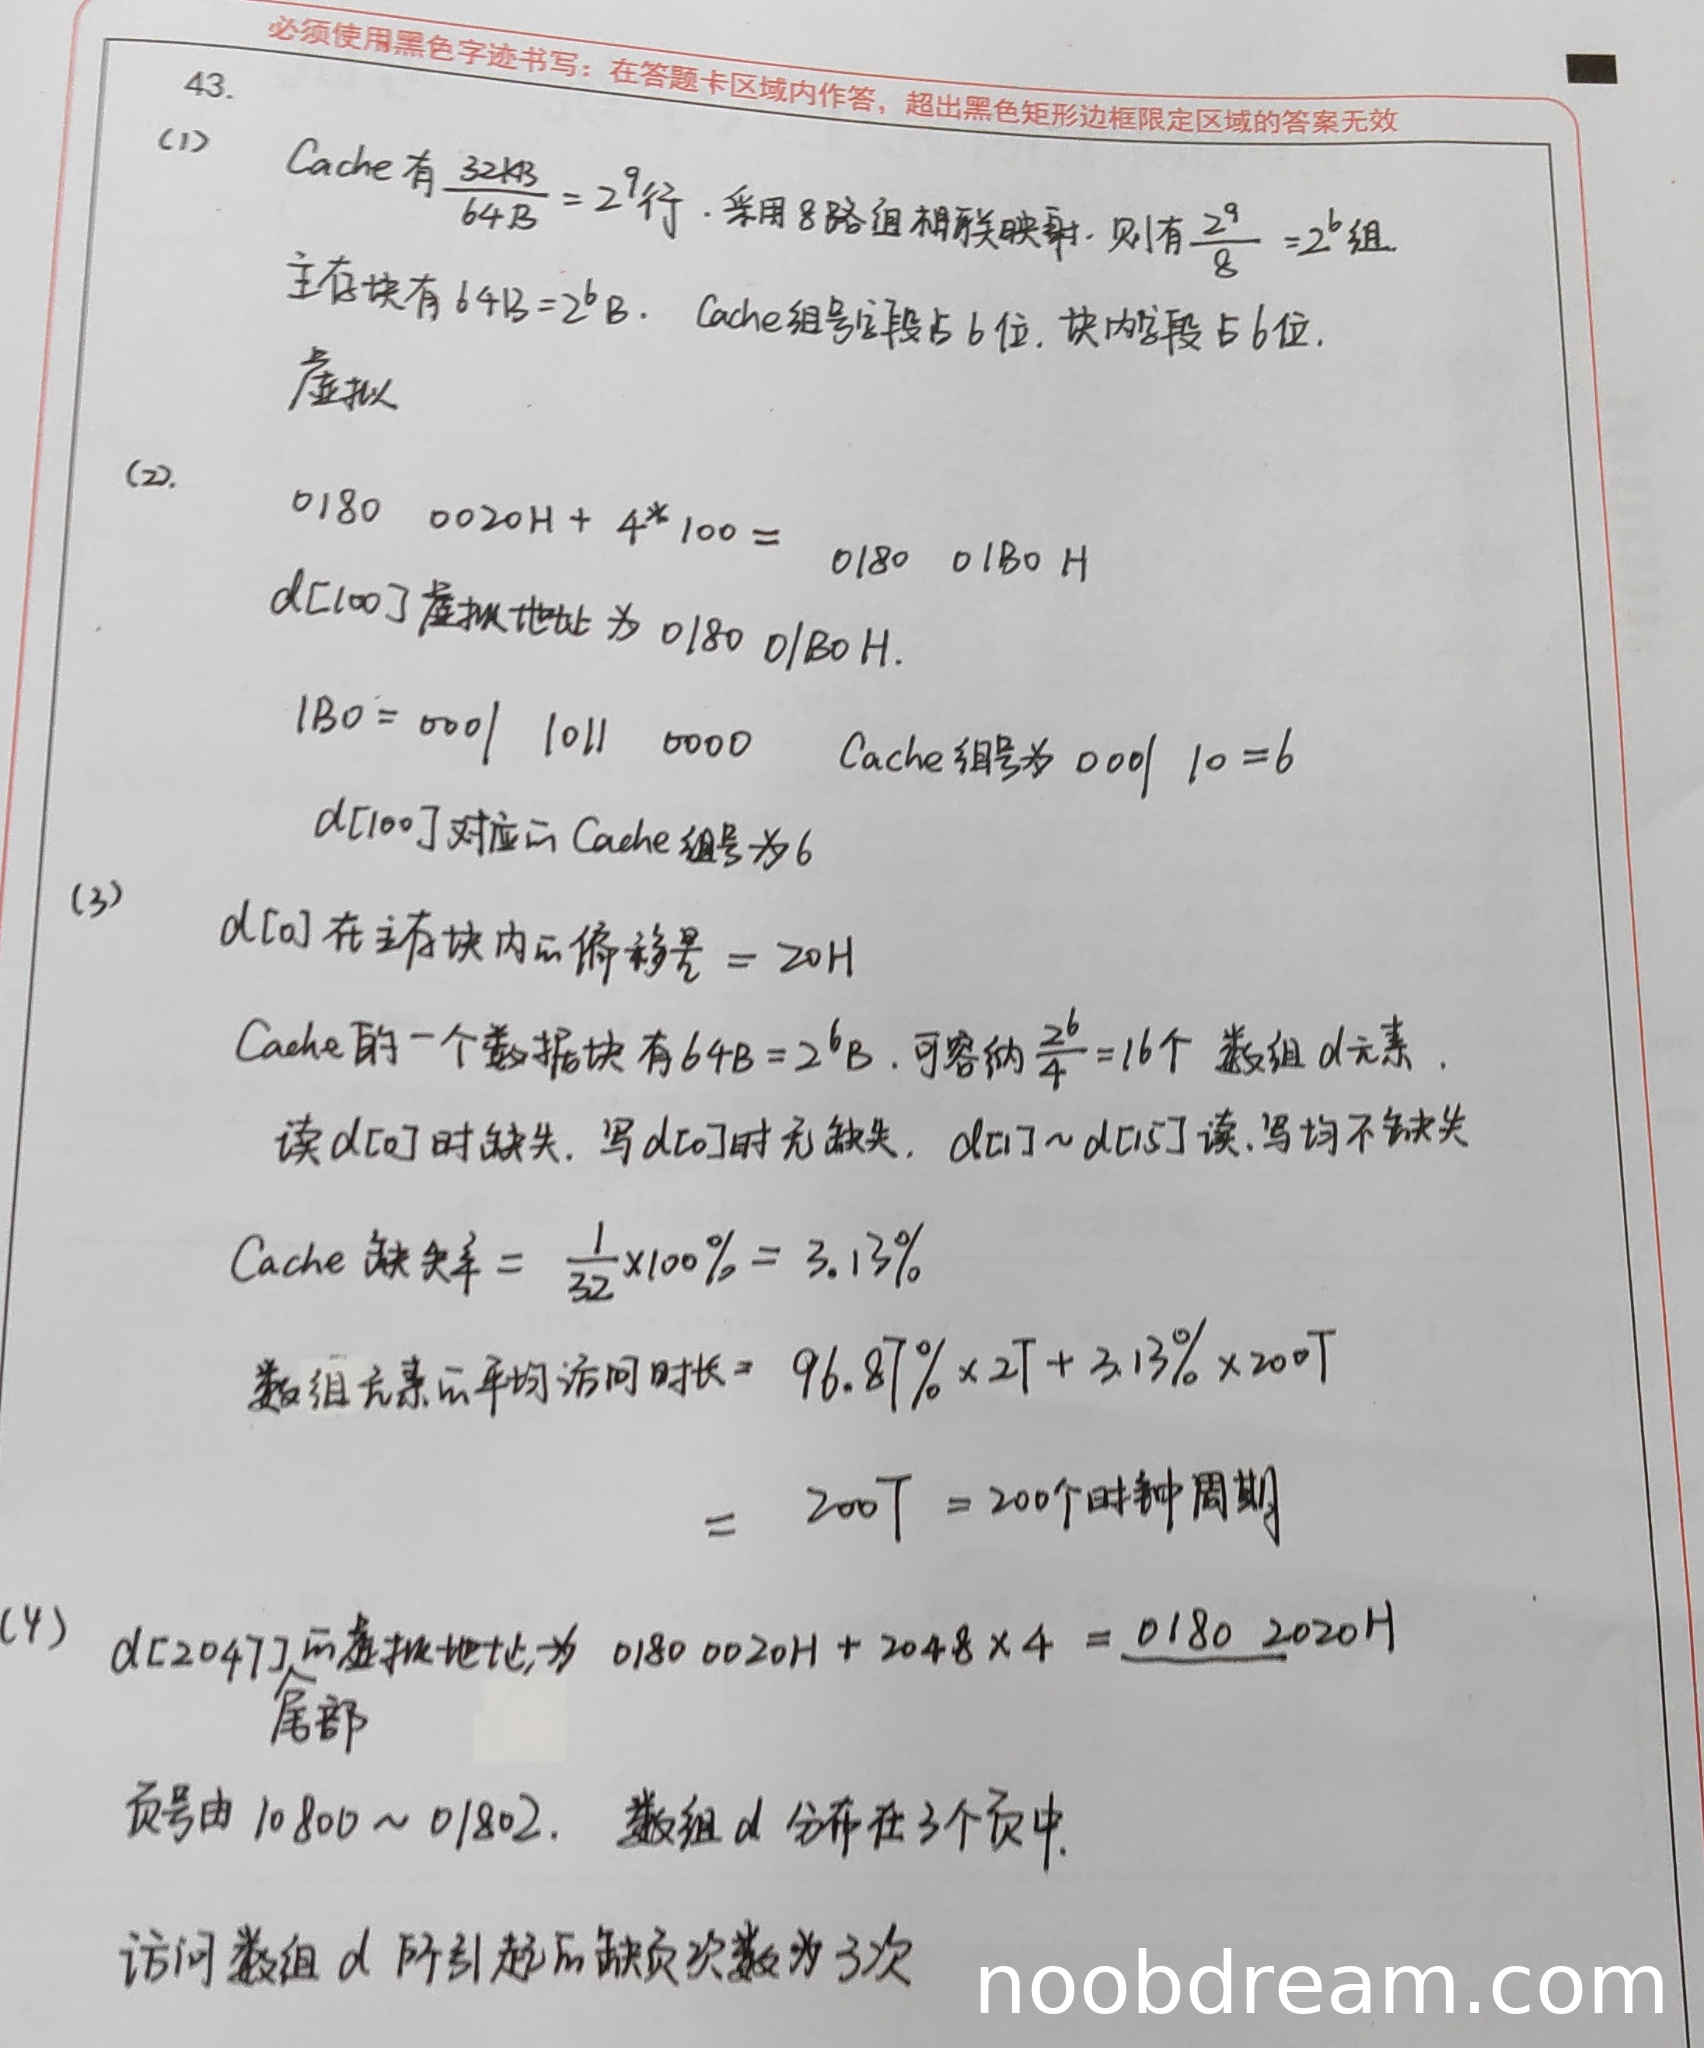 必须使用黑色字迹书写：在答题卡区域内作答，超出黑色矩形边框限定区域的答案无效
43.
(1) Cache有 32KB/64B = 2^9行. 采用8路组相联映射. 则有 2^9/8 = 2^6组.
主存块有64B=2^6B. Cache组号字段占6位. 块内字段占6位.
虚拟
(2). 0180 0020H + 4*100 = 0180 01B0 H
d[100]虚拟地址为 0180 01B0 H.
1B0 = 0001 1011 0000 Cache组号为 0001 10 = 6
d[100]对应的Cache组号为6
(3) d[0]在主存块内的偏移量 = 20H
Cache的一个数据块有64B=2^6B. 可容纳 2^6/4 = 16个 数组d元素.
读d[0]时缺失. 写d[0]时无缺失. d[1]~d[15]读.写均不缺失
Cache缺失率 = 1/32 ×100% = 3.13%
数组元素的平均访问时长 = 96.87% × 2T + 3.13% × 200T
= 200T = 200个时钟周期
(4) d[2047]尾部的虚拟地址为 0180 0020H + 2048 × 4 = 0180 2020H
页号由 10800 ~ 01802. 数组d 分布在3个页中.
访问数组d 所引起的缺页次数为3次
noobdream.com